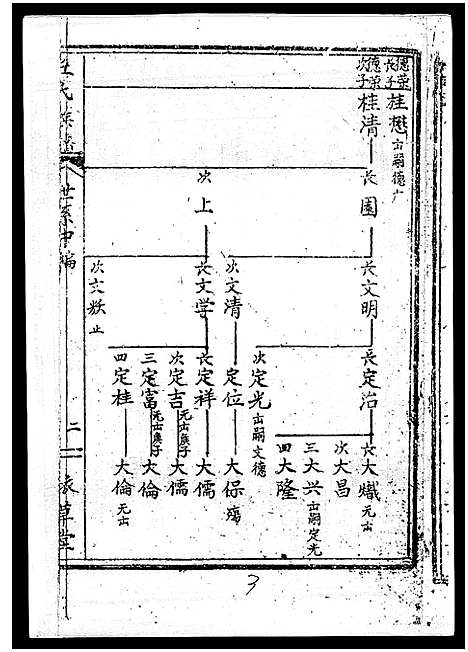 德荣长子 桂懋 出嗣德广
德荣次子 桂清
长 園
次 上
长 文明
次 文清
长 文学
次 文 止
长 定治
次 定光 出嗣文德
定位
长 定祥
次 定吉
三 定富
四 定桂
大熾 元出
次 大昌
三 大兴 出嗣定光
四 大隆
大保 殇
大儒
大儒 元出庚子
大倫 元出庚子
大倫 元出
氏族譜
世系中編
二
草堂
3